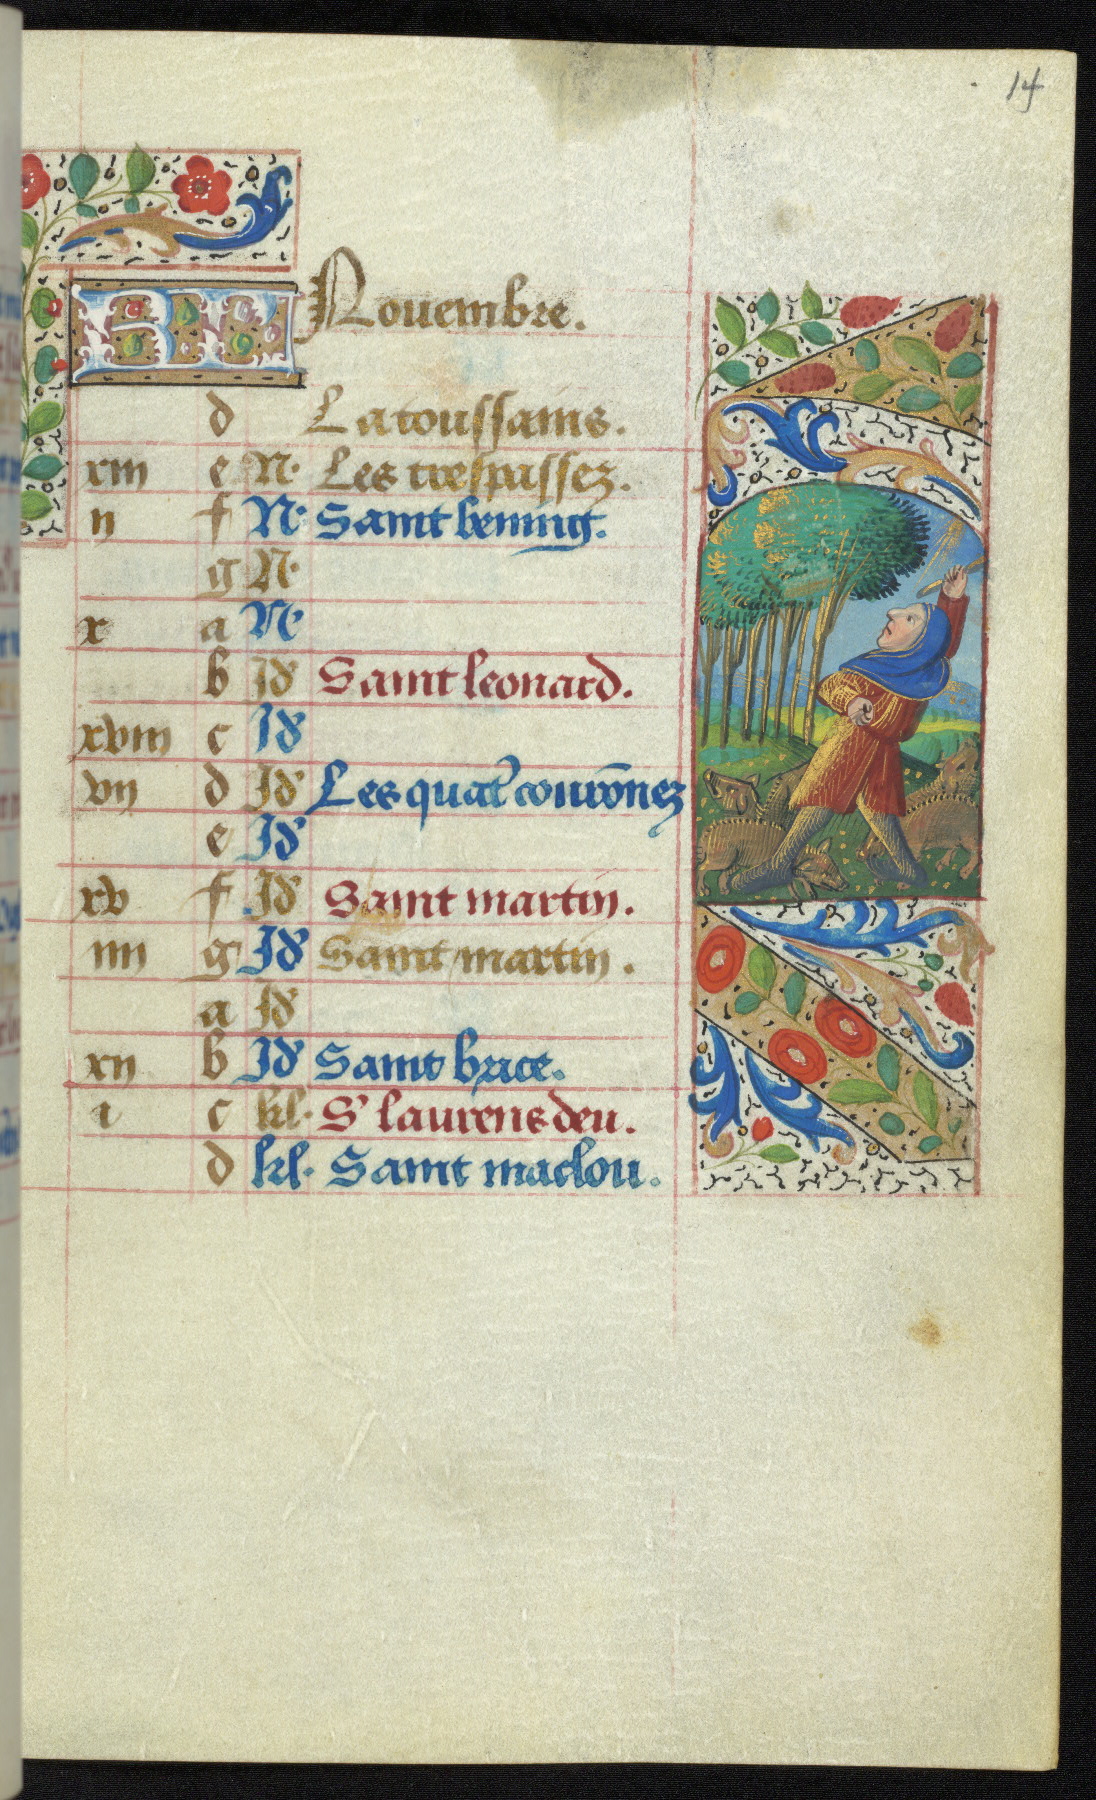 14
KL Nouembre.
d La toussains.
xiii e N. Les trespassez.
ii f N. Saint bening.
g N.
x a N.
b Id Saint leonard.
xviii c Id
vii d Id Les quat' couronez
e Id
xv f Id Saint martin.
iiii g Id Saint martin.
a Id
xii b Id Saint brice.
i c kl. S' laurens deu.
d kl. Saint maclou.